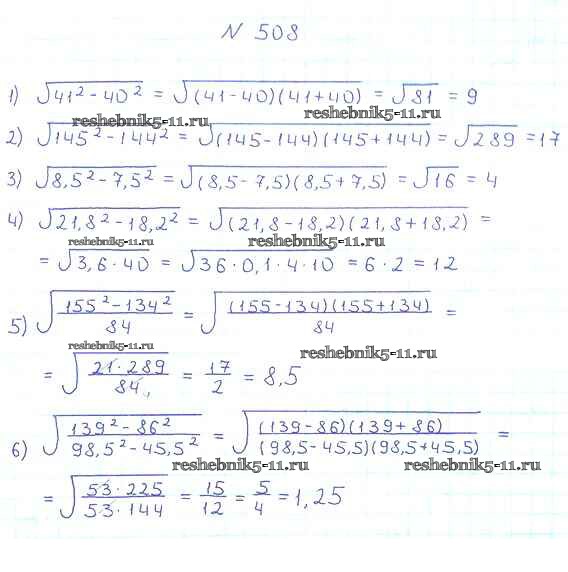 N 508
1) √(41² - 40²) = √((41-40)(41+40)) = √81 = 9
reshebnik5-11.ru reshebnik5-11.ru
2) √(145² - 144²) = √((145-144)(145+144)) = √289 = 17
3) √(8,5² - 7,5²) = √((8,5-7,5)(8,5+7,5)) = √16 = 4
4) √(21,8² - 18,2²) = √((21,8-18,2)(21,8+18,2)) =
reshebnik5-11.ru reshebnik5-11.ru
= √(3,6·40) = √(36·0,1·4·10) = 6·2 = 12
5) √((155² - 134²)/84) = √((155-134)(155+134)/84) =
reshebnik5-11.ru reshebnik5-11.ru
= √(21·289/84) = 17/2 = 8,5
6) √((139² - 86²)/(98,5² - 45,5²)) = √((139-86)(139+86)/(98,5-45,5)(98,5+45,5)) =
reshebnik5-11.ru reshebnik5-11.ru
= √(53·225/53·144) = 15/12 = 5/4 = 1,25